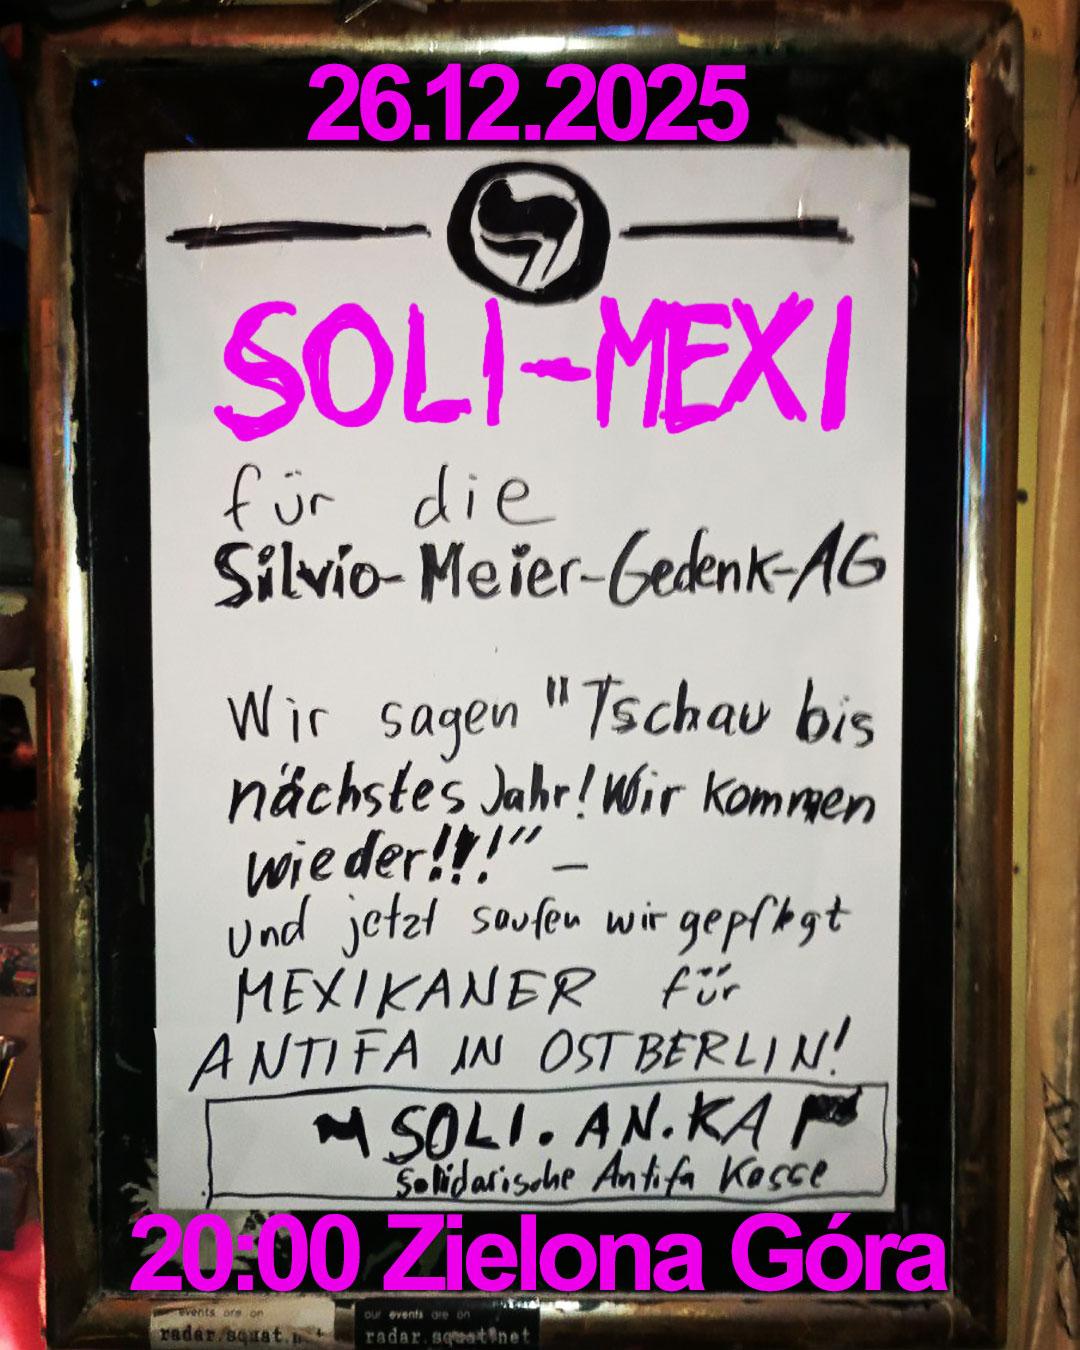 26.12.2025
SOLI-MEXI
für die
Silvio-Meier-Gedenk-AG
Wir sagen "Tschau bis
nächstes Jahr! Wir kommen
wieder!!!" –
und jetzt saufen wir gepflegt
MEXIKANER für
ANTIFA IN OSTBERLIN!
SOLI.AN.KA
Solidarische Antifa Kasse
20:00 Zielona Góra
events are on
our events are on
radar.squat.n t
radar.squat.net